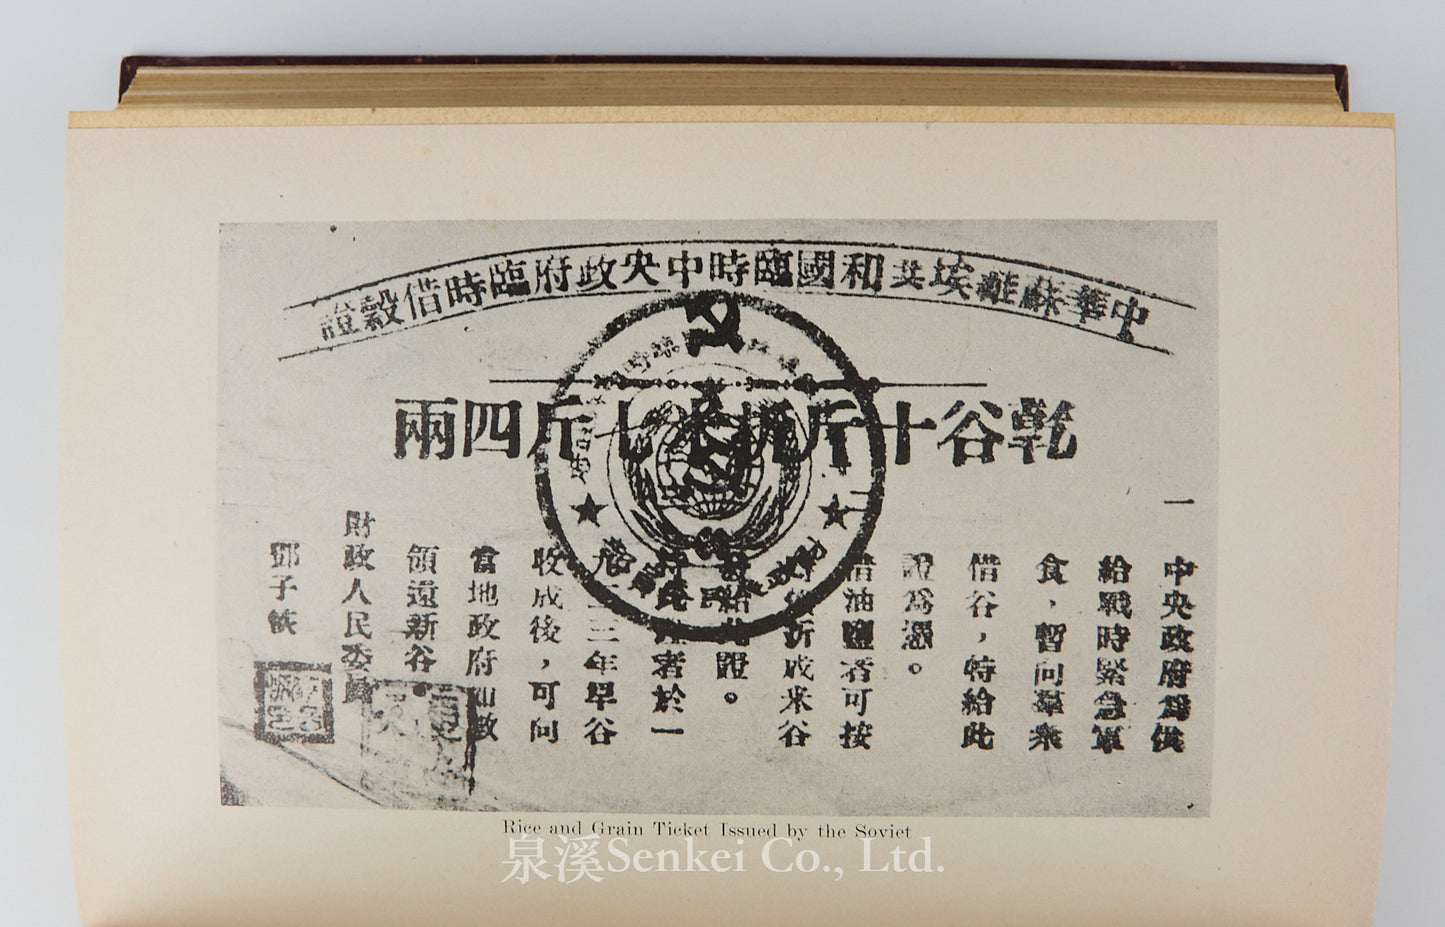 中華蘇維埃共和國臨時中央政府臨時借穀證
乾谷十斤折米七斤四兩
一
中央政府爲供
給戰時緊急軍
食，暫向羣衆
借谷，特給此
證爲憑。
借油鹽者可按
折成米谷
給此證。
者於一
三三年早谷
收成後，可向
當地政府如數
領還新谷。
財政人民委員
鄧子恢
Rice and Grain Ticket Issued by the Soviet
泉溪Senkei Co., Ltd.